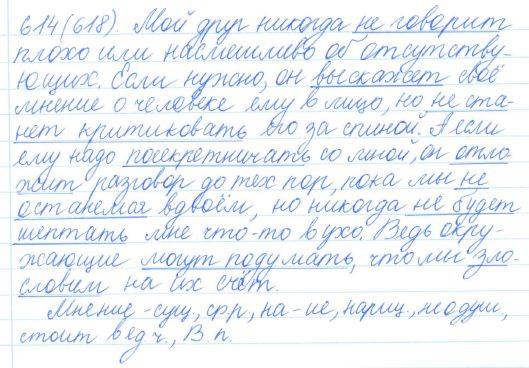 614(618). Мой друг никогда не говорит
плохо или насмешливо об отсутству-
ющих. Если нужно, он выскажет своё
мнение о человеке ему в лицо, но не ста-
нет критиковать его за спиной. А если
ему надо посекретничать со мной, он отло-
жит разговор до тех пор, пока мы не
останемся вдвоём, но никогда не будет
шептать мне что-то в ухо. Ведь окру-
жающие могут подумать, что мы зло-
словим на их счёт.
Мнение - сущ., ср.р., на -ие, нариц., неодуш.,
стоит в ед.ч., В.п.